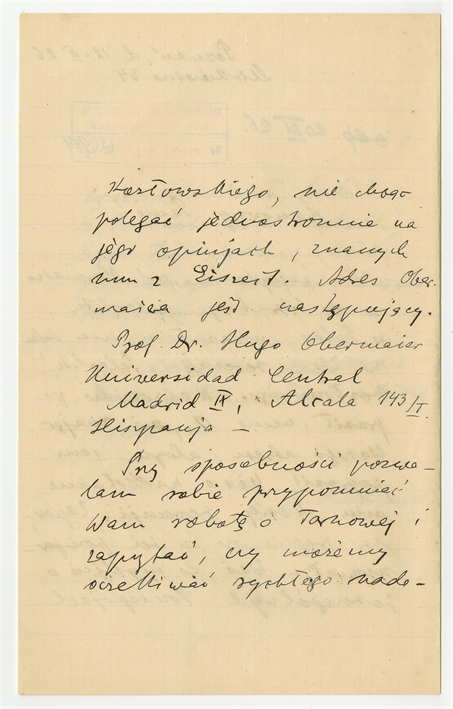 Kozłowskiego, nie mogą
polegać jednostronnie na
jego opinjach, znanych
mu z Eiszeit. Adres Ober-
maiera jest następujący.
Prof. Dr. Hugo Obermaier
Universidad Central
Madrid IX, Alcala 143/I.
Hiszpanja —
Przy sposobności pozwa-
lam sobie przypomnieć
Wam robotę o Tarnowej i
zapytać, czy możemy
oczekiwać rychłego nade-